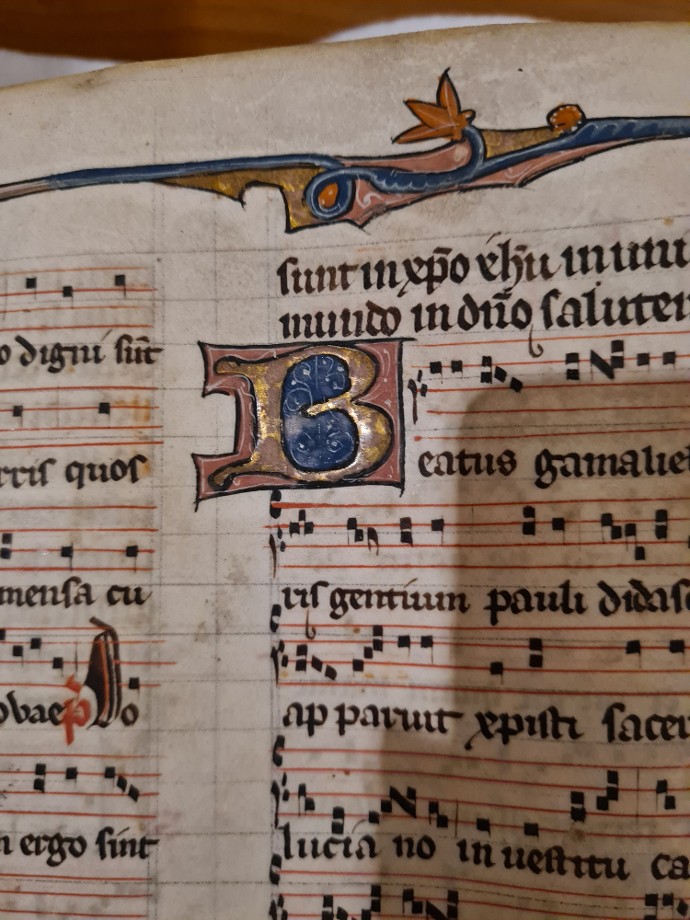 o digni sūt
rris quos
mensa cu
obae p̄ Do
n ergo sint
sunt in xp̄o
mundo in dn̄o saluter
Beatus gamaliel
ris gentium pauli didasc
apparuit xpisti sacer
lucia no in uestitu ca